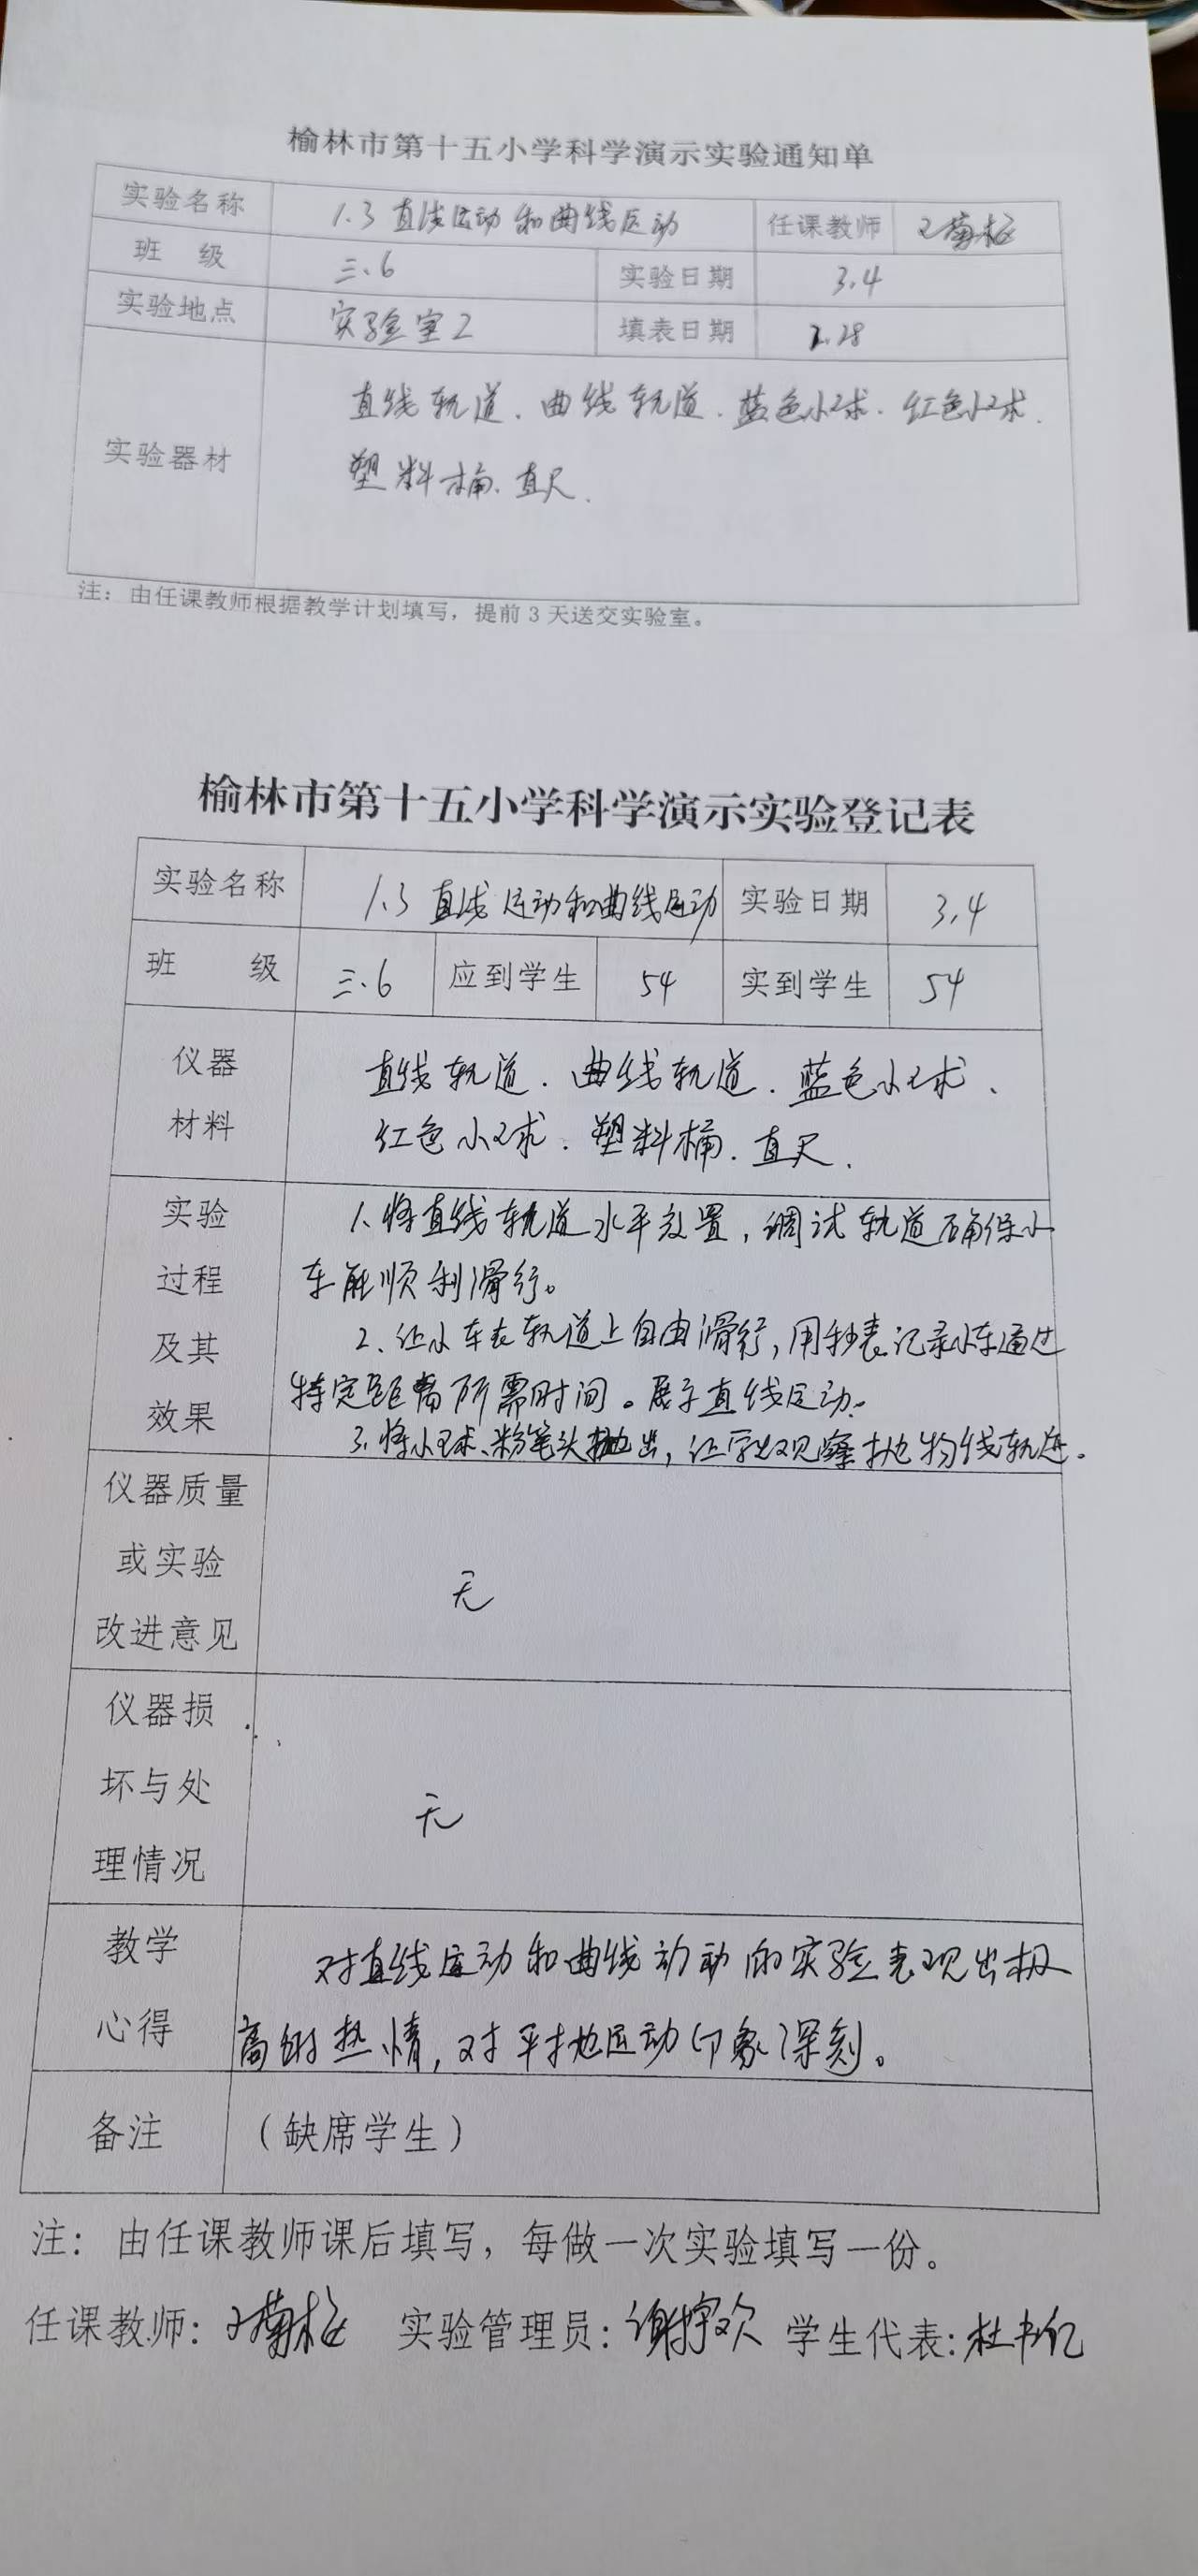 榆林市第十五小学科学演示实验通知单
实验名称 1.3 直线运动和曲线运动 任课教师 王菊梅
班 级 三.6 实验日期 3.4
实验地点 实验室2 填表日期 2.28
实验器材 直线轨道.曲线轨道.蓝色小球.红色小球.
塑料桶.直尺.
注：由任课教师根据教学计划填写，提前 3 天送交实验室。
榆林市第十五小学科学演示实验登记表
实验名称 1.3 直线运动和曲线运动 实验日期 3.4
班 级 三.6 应到学生 54 实到学生 54
仪器 直线轨道.曲线轨道.蓝色小球.
材料 红色小球.塑料桶.直尺.
实验 1.将直线轨道水平放置，调试轨道确保小
过程 车能顺利滑行。
及其 2.让小车在轨道上自由滑行，用秒表记录小车通过
效果 特定距离所需时间。展示直线运动.
3.将小球、粉笔头抛出，让学生观察抛物线轨迹.
仪器质量
或实验 无
改进意见
仪器损
坏与处 无
理情况
教学 对直线运动和曲线动动的实验表现出极
心得 高的热情，对平抛运动印象深刻。
备注 （缺席学生）
注：由任课教师课后填写，每做一次实验填写一份。
任课教师：王菊梅 实验管理员：谢 欢 学生代表：杜书亿